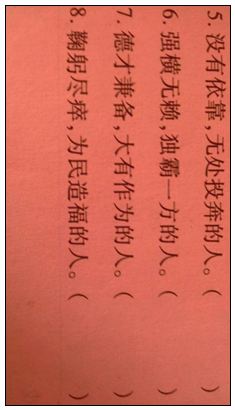 5. 没有依靠,无处投奔的人。( )
6. 强横无赖,独霸一方的人。( )
7. 德才兼备,大有作为的人。( )
8. 鞠躬尽瘁,为民造福的人。( )